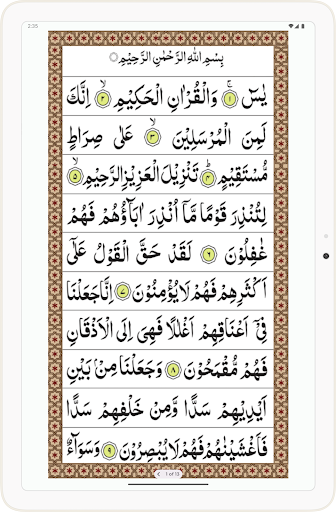 2:35
بِسْمِ اللّٰهِ الرَّحْمٰنِ الرَّحِيْمِ
يٰسٓ ۚ﴿١﴾ وَالْقُرْاٰنِ الْحَكِيْمِ ﴿٢﴾ اِنَّكَ
لَمِنَ الْمُرْسَلِيْنَ ﴿٣﴾ عَلٰى صِرَاطٍ
مُّسْتَقِيْمٍ ﴿٤﴾ تَنْزِيْلَ الْعَزِيْزِ الرَّحِيْمِ ﴿٥﴾
لِتُنْذِرَ قَوْمًا مَّآ اُنْذِرَ اٰبَآؤُهُمْ فَهُمْ
غٰفِلُوْنَ ﴿٦﴾ لَقَدْ حَقَّ الْقَوْلُ عَلٰٓى
اَكْثَرِهِمْ فَهُمْ لَا يُؤْمِنُوْنَ ﴿٧﴾ اِنَّا جَعَلْنَا
فِيْٓ اَعْنَاقِهِمْ اَغْلٰلًا فَهِيَ اِلَى الْاَذْقَانِ
فَهُمْ مُّقْمَحُوْنَ ﴿٨﴾ وَجَعَلْنَا مِنْۢ بَيْنِ
اَيْدِيْهِمْ سَدًّا وَّمِنْ خَلْفِهِمْ سَدًّا
فَاَغْشَيْنٰهُمْ فَهُمْ لَا يُبْصِرُوْنَ ﴿٩﴾ وَسَوَآءٌ
1 of 13